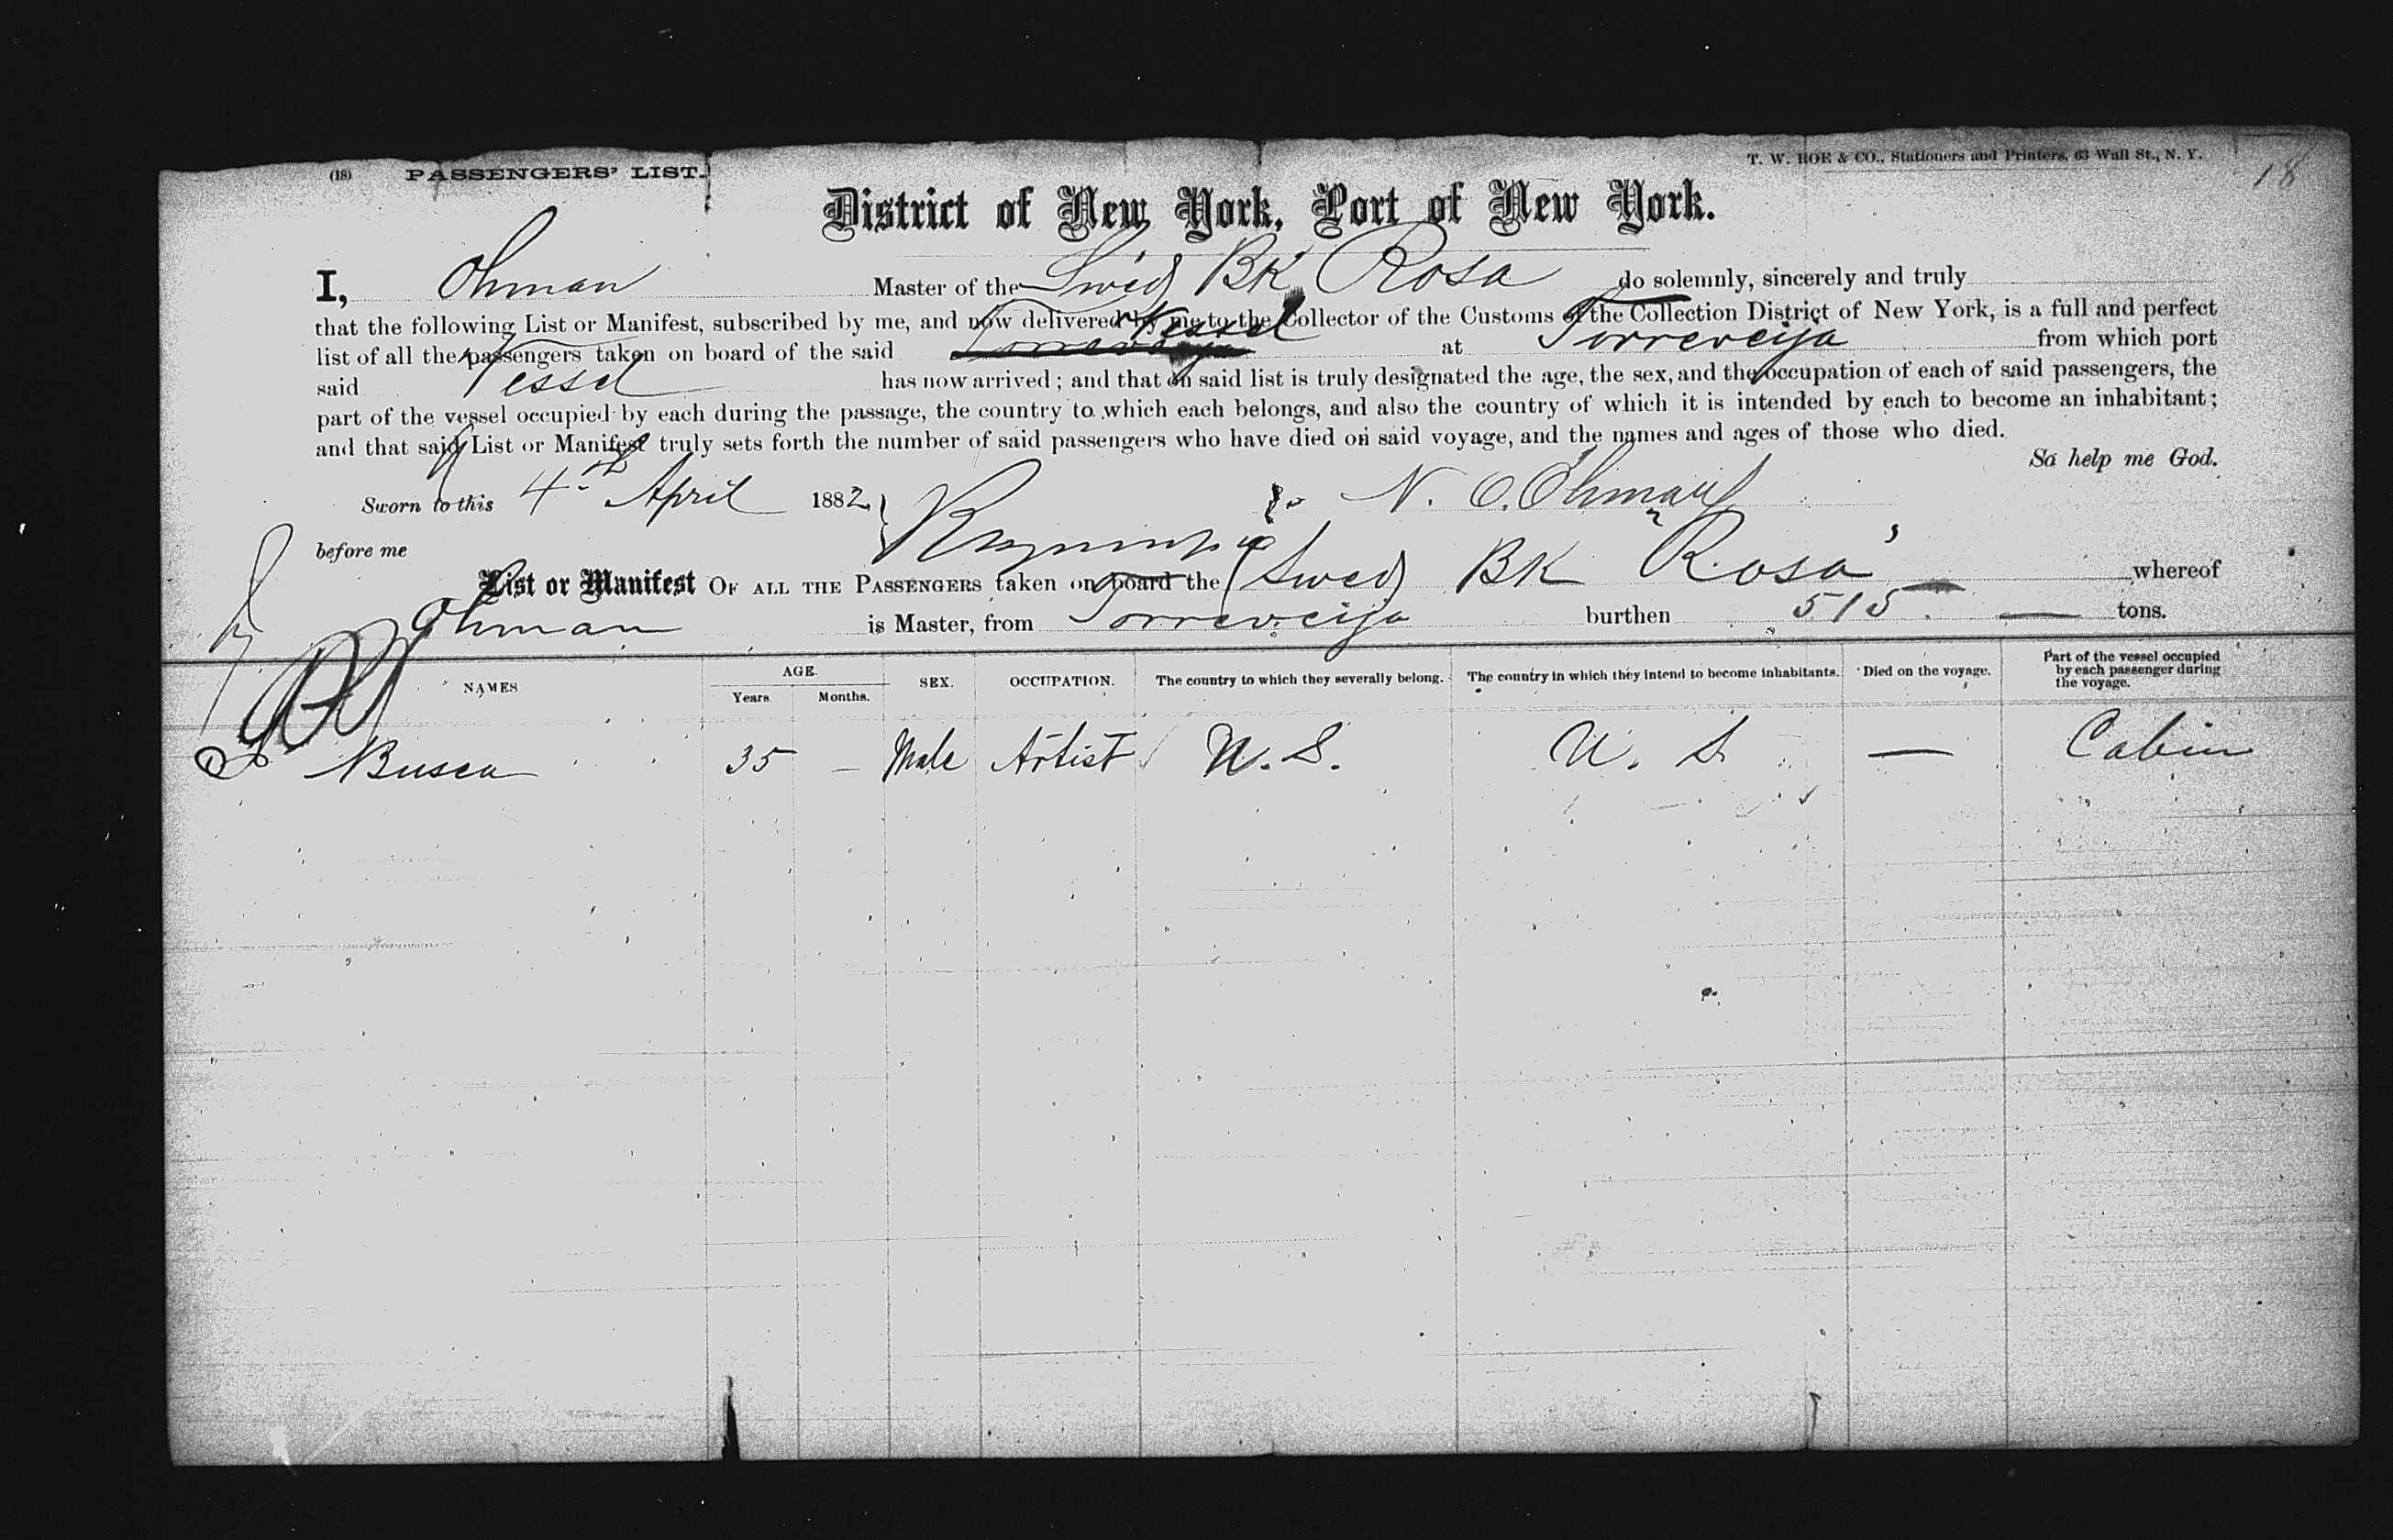 (18) PASSENGERS' LIST. T. W. ROE & CO., Stationers and Printers, 63 Wall St., N. Y. 18
District of New York, Port of New York.
I, Ohman Master of the Swed Bk Rosa do solemnly, sincerely and truly
that the following List or Manifest, subscribed by me, and now delivered by me to the Collector of the Customs of the Collection District of New York, is a full and perfect
list of all the passengers taken on board of the said Torreveija Vessel at Torreveija from which port
said Vessel has now arrived; and that on said list is truly designated the age, the sex, and the occupation of each of said passengers, the
part of the vessel occupied by each during the passage, the country to which each belongs, and also the country of which it is intended by each to become an inhabitant;
and that said List or Manifest truly sets forth the number of said passengers who have died on said voyage, and the names and ages of those who died.
So help me God.
Sworn to this 4th April 1882 N. O. Öhman
before me
List or Manifest OF ALL THE PASSENGERS taken on board the Swed Bk Rosa whereof
Ohman is Master, from Torreveija burthen 515 tons.
NAMES AGE Years Months. SEX. OCCUPATION. The country to which they severally belong. The country in which they intend to become inhabitants. Died on the voyage. Part of the vessel occupied by each passenger during the voyage.
Busca 35 — Male Artist U. S. U. S — Cabin